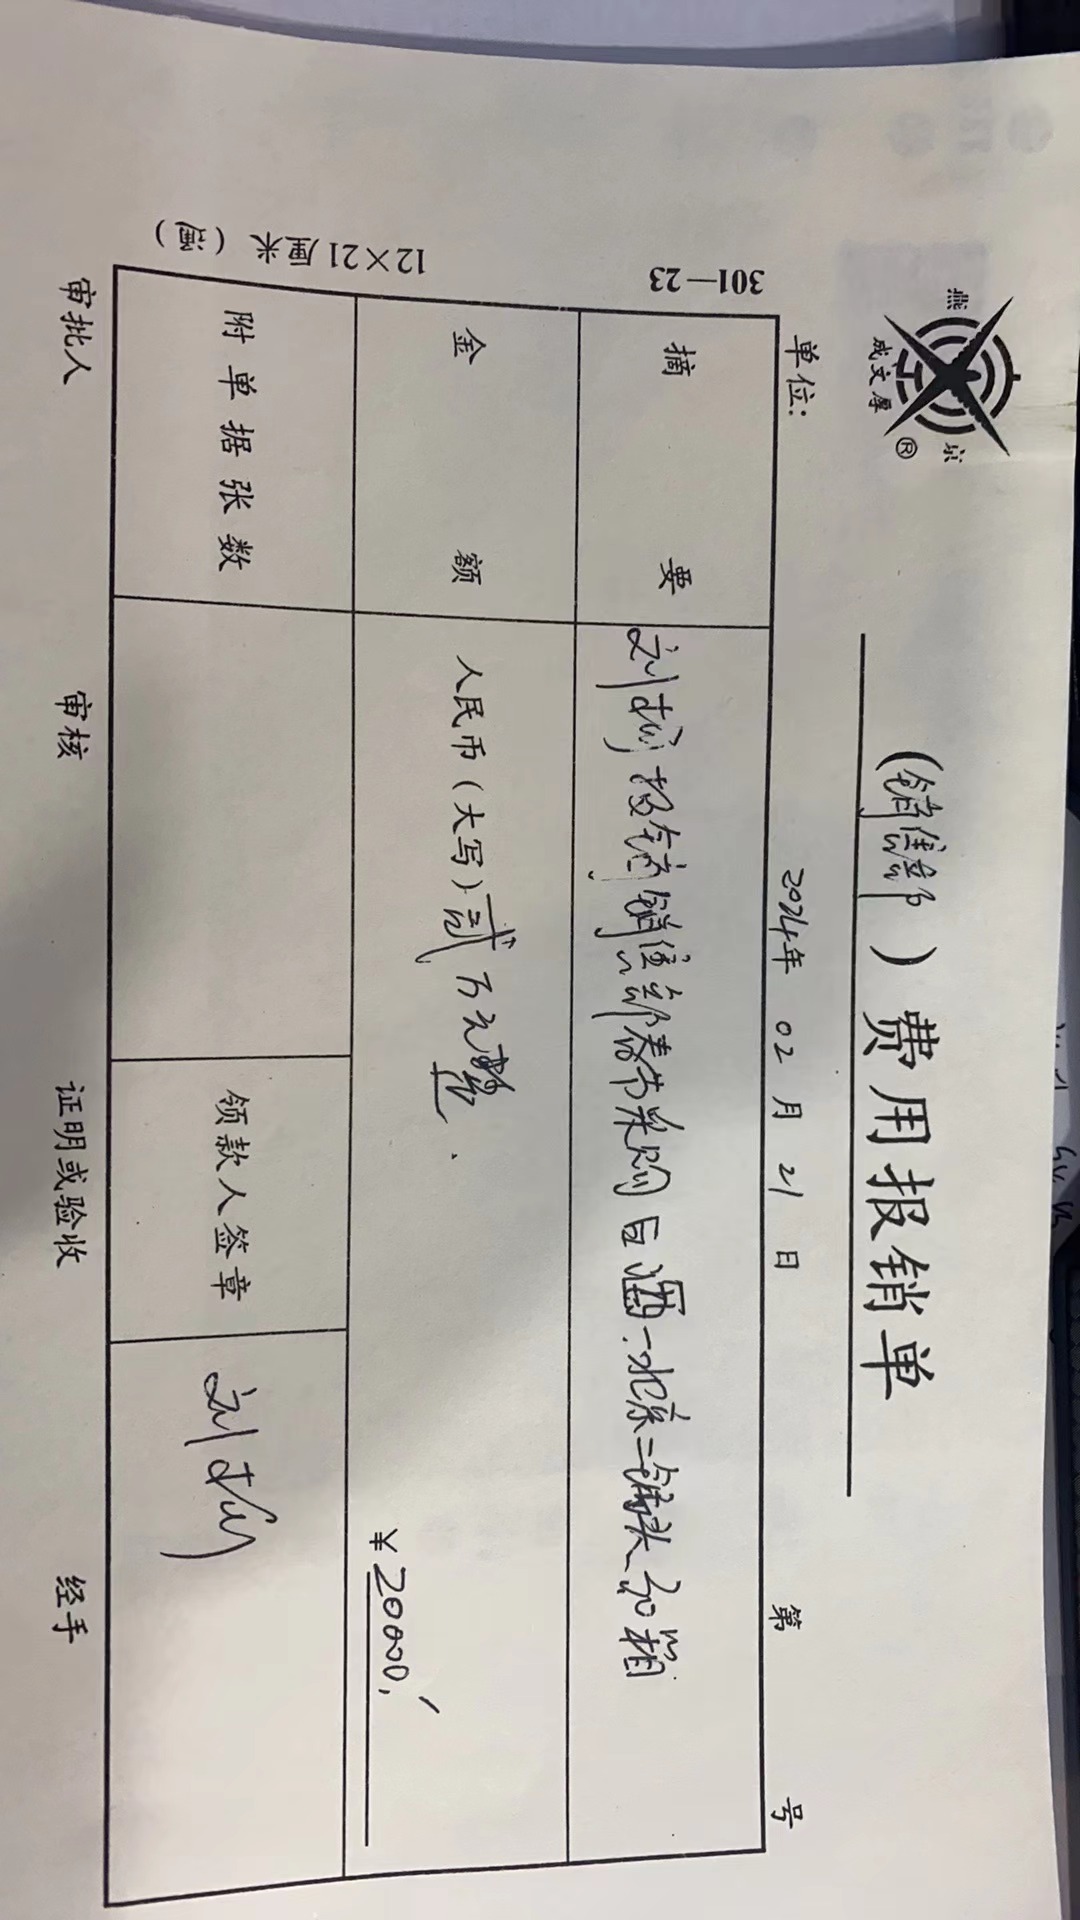 燕京
成文厚®
(销售部)费用报销单
单位: 2024年 02月 21日 第 号
摘要 刘 报销销售部春节采购白酒-北京二锅头 30箱
金额 人民币(大写)贰万元整.
¥20000,
附单据张数 领款人签章 刘
审批人 审核 证明或验收 经手
301—23
12×21厘米